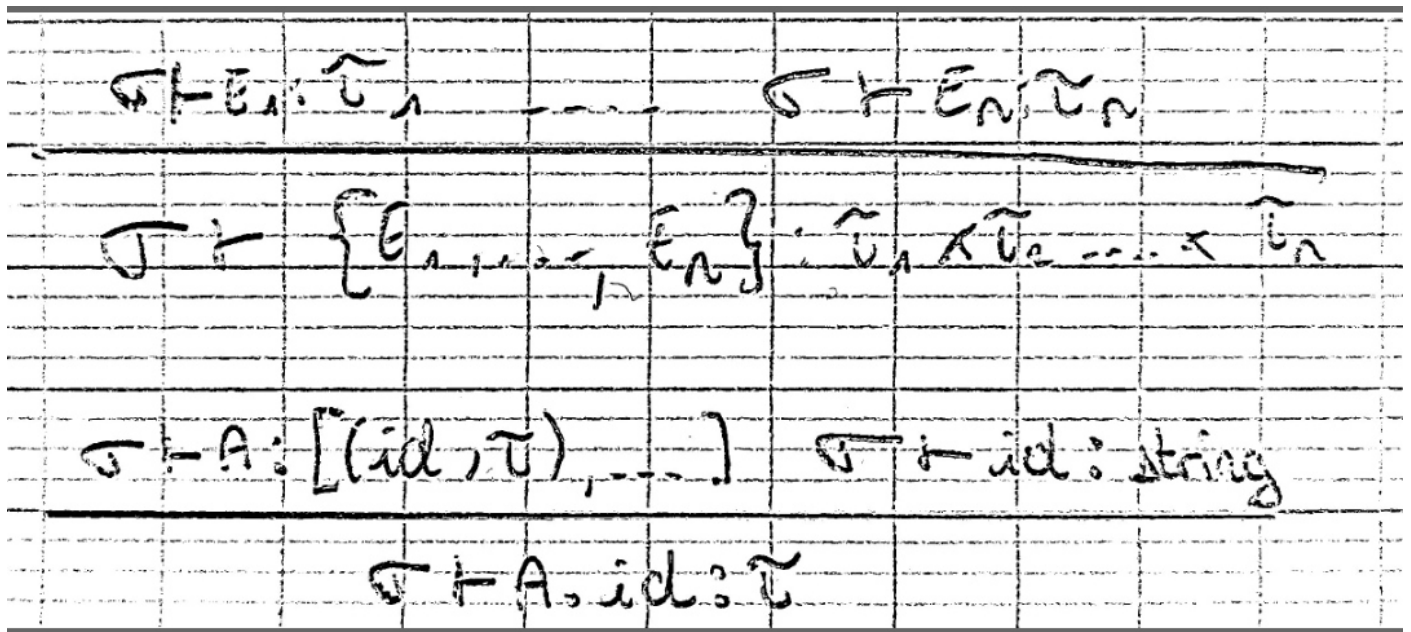 σ ⊢ E₁ : τ₁ ..... σ ⊢ Eₙ : τₙ
σ ⊢ {E₁, ..., Eₙ} : τ₁ × τ₂ .... × τₙ
σ ⊢ A : [(id, τ), ....] σ ⊢ id : string
σ ⊢ A.id : τ